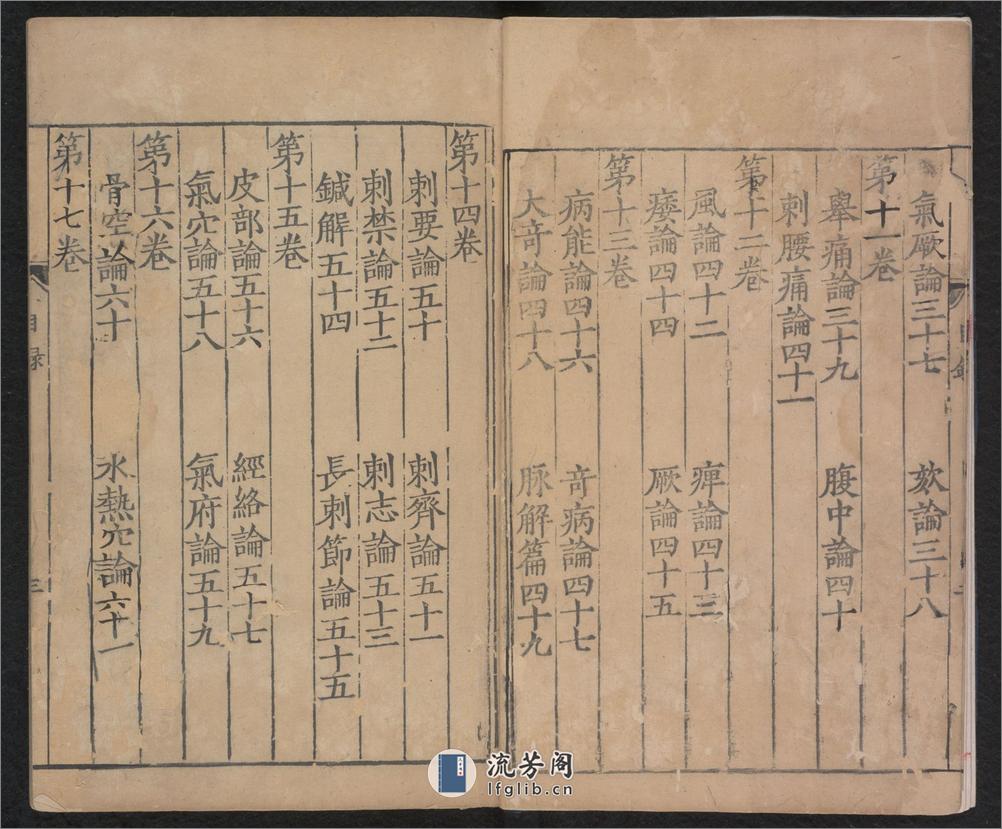 氣厥論三十七 欬論三十八
第十一卷
舉痛論三十九 腹中論四十
刺腰痛論四十一
第十二卷
風論四十二 痺論四十三
痿論四十四 厥論四十五
第十三卷
病能論四十六 奇病論四十七
大奇論四十八 脉解篇四十九
第十四卷
刺要論五十 刺齊論五十一
刺禁論五十二 刺志論五十三
鍼解五十四 長刺節論五十五
第十五卷
皮部論五十六 經絡論五十七
氣穴論五十八 氣府論五十九
第十六卷
骨空論六十 水熱穴論六十一
第十七卷
目録
三
流芳阁
lfglib.cn